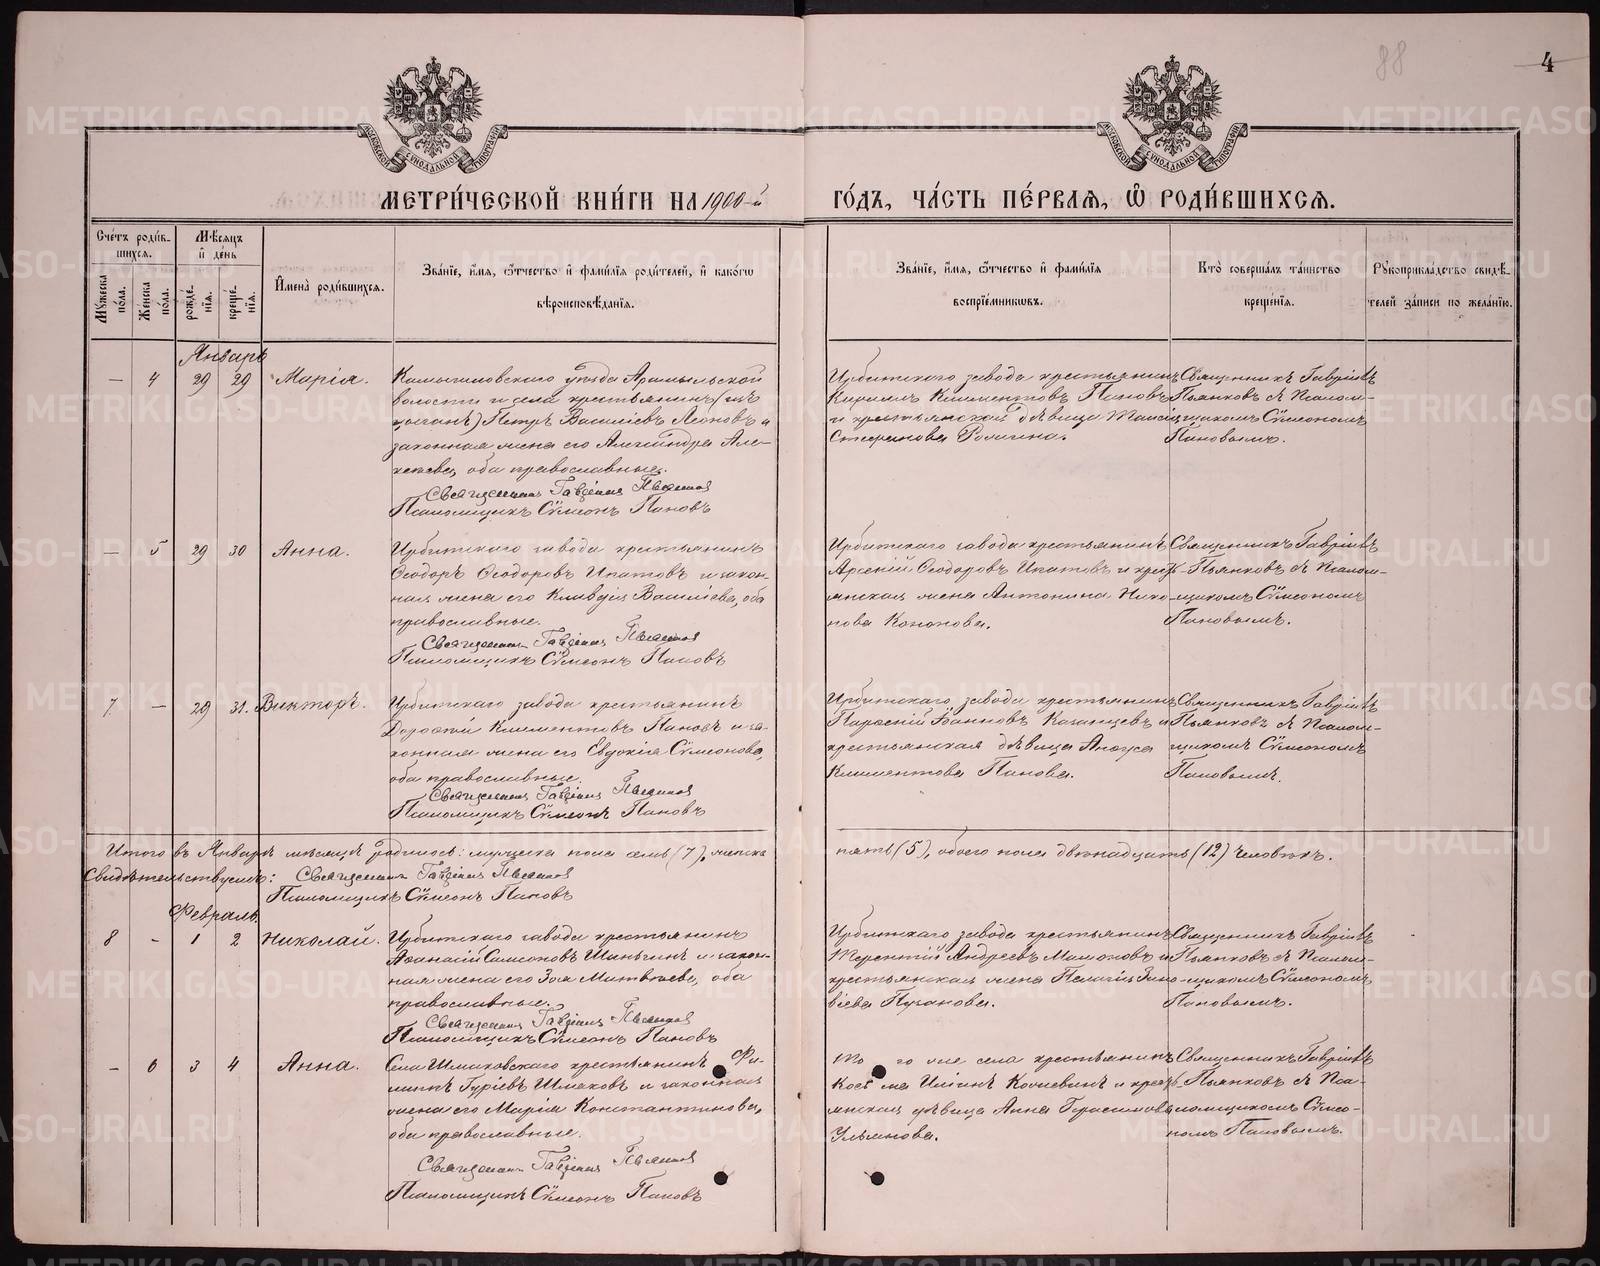 88
4
МЕТРИ́ЧЕСКОЙ КНИ́ГИ НА 1900-й
ГО́ДЪ, ЧА́СТЬ ПЕ́РВАЯ, Ѡ РОДИ́ВШИХСЯ.
Сче́тъ роди́в-
шихся.
Мѣ́сяцъ
и де́нь
Му́жеска
по́ла.
Же́нска
по́ла.
рожде́-
нїя.
креще́-
нїя.
И҆мена̀ роди́вшихся.
Зва́нїе, и҆́мя, ѻ҆́тчество и҆ фами́лїя роди́телей, и҆ како́гѡ
вѣроисповѣ́данїя.
Зва́нїе, и҆́мя, ѻ҆́тчество и҆ фами́лїя
воспрїе́мникѡвъ.
Кто̀ соверша́лъ та́инство
креще́нїя.
Рꙋкоприкла́дство свидѣ́-
телей за́писи по жела́нїю.
Январь
— 4 29 29 Марія.
Камышловскаго уѣзда Арамыльской
волости и села крестьянинъ (изъ
цыганъ) Петръ Василіевъ Леоновъ и
законная жена его Александра Але-
ксѣева, оба православные.
Священникъ Гавріилъ Пьянковъ
Псаломщикъ Сѵмеонъ Пановъ
Ирбитскаго завода крестьянинъ
Кириллъ Климентовъ Пановъ
и крестьянская дѣвица Таисія
Стефанова Ромина.
Священникъ Гавріилъ
Пьянковъ съ Псалом-
щикомъ Сѵмеономъ
Пановымъ.
— 5 29 30 Анна.
Ирбитскаго завода крестьянинъ
Ѳеодоръ Ѳеодоровъ Ипатовъ и закон-
ная жена его Клавдія Василіева, оба
православные.
Священникъ Гавріилъ Пьянковъ
Псаломщикъ Сѵмеонъ Пановъ
Ирбитскаго завода крестьянинъ
Арсеній Ѳеодоровъ Ипатовъ и кресть-
янская жена Антонина Нико-
нова Кононова.
Священникъ Гавріилъ
Пьянковъ съ Псалом-
щикомъ Сѵмеономъ
Пановымъ.
7 — 29 31. Викторъ.
Ирбитскаго завода крестьянинъ
Дороѳей Климентовъ Пановъ и за-
конная жена его Евдокія Сѵмеонова,
оба православные.
Священникъ Гавріилъ Пьянковъ
Псаломщикъ Сѵмеонъ Пановъ
Ирбитскаго завода крестьянинъ
Парѳеній Іоанновъ Казанцевъ и
крестьянская дѣвица
Климентова Панова.
Священникъ Гавріилъ
Пьянковъ съ Псалом-
щикомъ Сѵмеономъ
Пановымъ.
Итого въ Январѣ мѣсяцѣ родилось: мужеска пола семь (7), женска
пять (5), обоего пола двѣнадцать (12) человѣкъ.
Свидѣтельствуемъ: Священникъ Гавріилъ Пьянковъ
Псаломщикъ Сѵмеонъ Пановъ
Февраль.
8 — 1 2 Николай.
Ирбитскаго завода крестьянинъ
Аѳанасій Самсоновъ Шиньгинъ и закон-
ная жена его Зоя Матвѣева, оба
православные.
Священникъ Гавріилъ Пьянковъ
Псаломщикъ Сѵмеонъ Пановъ
Ирбитскаго завода крестьянинъ
Терентій Андреевъ Мамоновъ и
крестьянская жена Пелагія Зино-
віева Пузанова.
Священникъ Гавріилъ
Пьянковъ съ Псалом-
щикомъ Сѵмеономъ
Пановымъ.
— 6 3 4 Анна.
Села Шмаковскаго крестьянинъ Фи-
липпъ Гуріевъ Шмаковъ и законная
жена его Марія Константинова,
оба православные.
Священникъ Гавріилъ Пьянковъ
Псаломщикъ Сѵмеонъ Пановъ
Того же села крестьянинъ
Косьма Иліинъ и кресть-
янская дѣвица Анна Герасимова
Ульянова.
Священникъ Гавріилъ
Пьянковъ съ Пса-
ломщикомъ Сѵмео-
номъ Пановымъ.